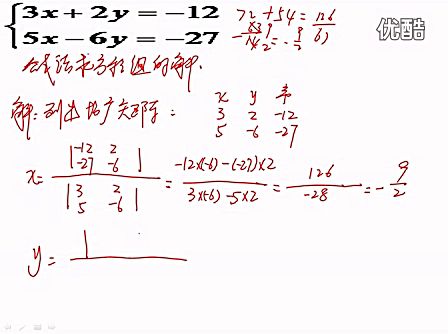 3x + 2y = -12
5x - 6y = -27
72 + 54 = 126
优酷
求方程组的解.
解: 列出增广矩阵:
x y 常
3 2 -12
5 -6 -27
x = |-12 2 -27 -6| / |3 2 5 -6| = -12×(-6) - (-27)×2 / 3×(-6) - 5×2 = 126 / -28 = - 9 / 2
y = |